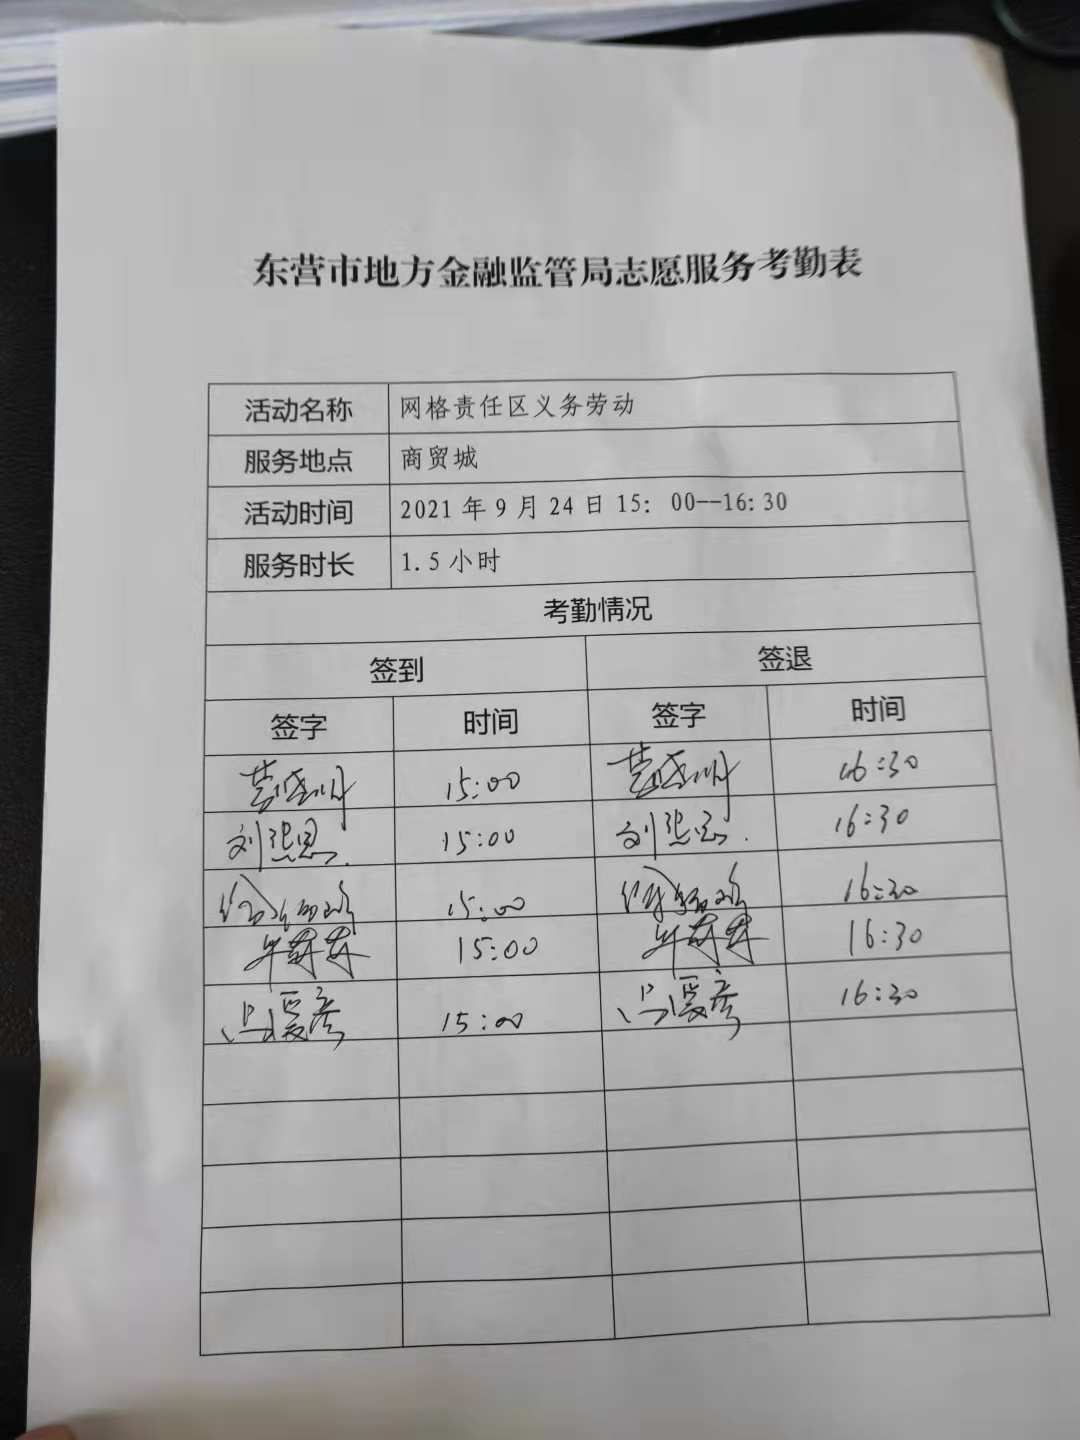 东营市地方金融监管局志愿服务考勤表
活动名称 网格责任区义务劳动
服务地点 商贸城
活动时间 2021年9月24日15：00--16:30
服务时长 1.5小时
考勤情况
签到 签退
签字 时间 签字 时间
15:00 16:30
刘 15:00 刘 16:30
15:00 16:30
牛萍萍 15:00 牛萍萍 16:30
冯 15:00 冯 16:30